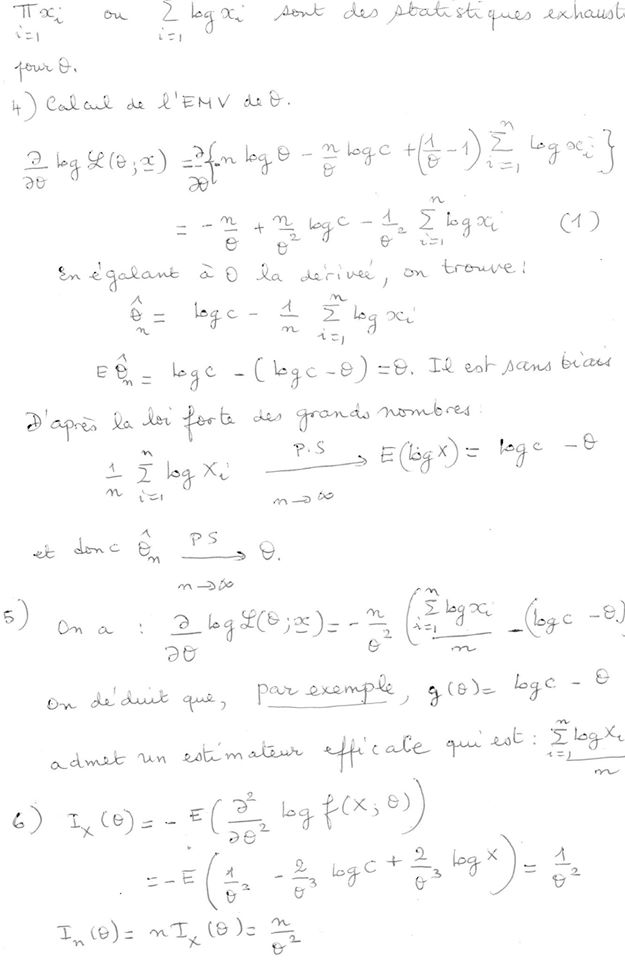 ∏_{i=1} xi ou Σ_{i=1} log xi sont des statistiques exhausti
pour θ.
4) Calcul de l'EMV de θ.
∂/∂θ log ℒ(θ; x) = ∂/∂θ {-n log θ - n/θ log c + (1/θ - 1) Σ_{i=1}^{n} log xi}
= - n/θ + n/θ² log c - 1/θ² Σ_{i=1}^{n} log xi (1)
En égalant à 0 la dérivée, on trouve :
θ̂_n = log c - 1/n Σ_{i=1}^{n} log xi
E θ̂_n = log c - (log c - θ) = θ. Il est sans biais
D'après la loi forte des grands nombres :
1/n Σ_{i=1}^{n} log Xi →^{P.S}_{n→∞} E(log X) = log c - θ
et donc θ̂_n →^{PS}_{n→∞} θ.
5) On a : ∂/∂θ log ℒ(θ; x) = - n/θ² (Σ_{i=1}^{n} log xi / n - (log c - θ)
On déduit que, par exemple, g(θ) = log c - θ
admet un estimateur efficace qui est : Σ_{i=1}^{n} log Xi / n
6) I_X(θ) = - E(∂²/∂θ² log f(X; θ))
= - E(1/θ² - 2/θ³ log c + 2/θ³ log X) = 1/θ²
I_n(θ) = n I_X(θ) = n/θ²